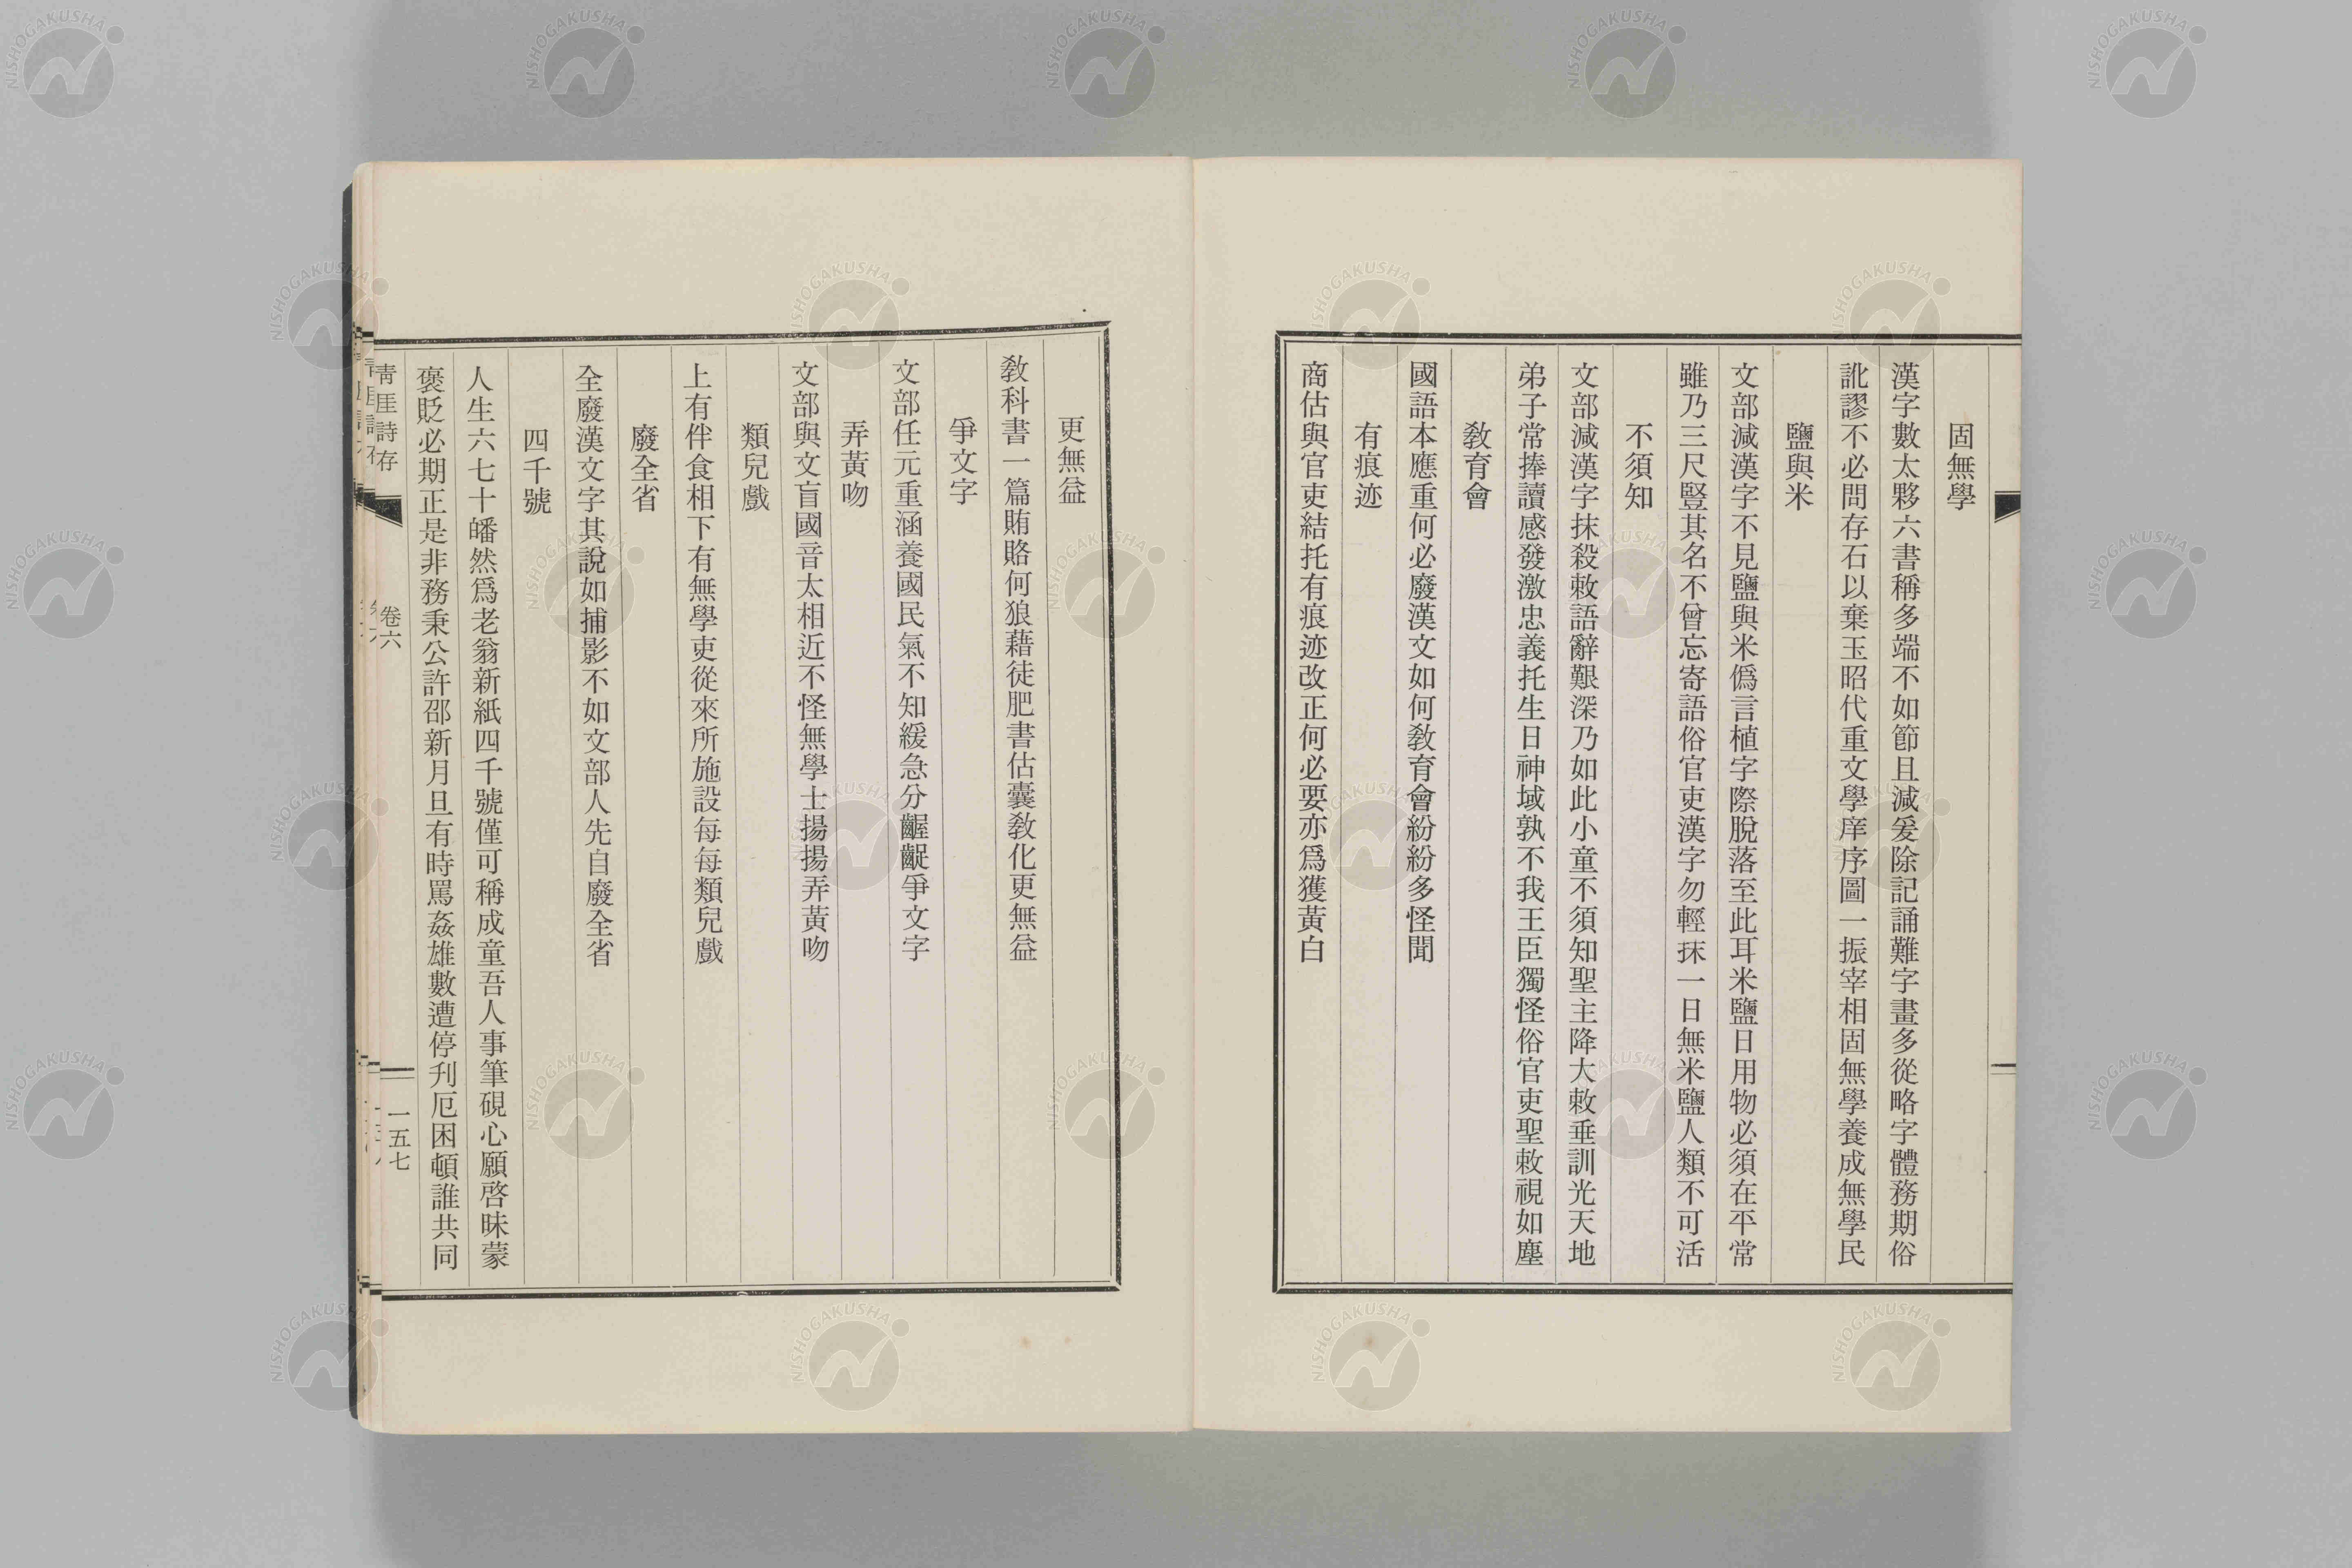 固無學
漢字數太夥六書稱多端不如節且減爰除記誦難字畫多從略字體務期俗
訛謬不必問存石以棄玉昭代重文學庠序圖一振宰相固無學養成無學民
鹽與米
文部減漢字不見鹽與米僞言植字際脫落至此耳米鹽日用物必須在平常
雖乃三尺豎其名不曾忘寄語俗官吏漢字勿輕抹一日無米鹽人類不可活
不須知
文部減漢字抹殺敕語辭艱深乃如此小童不須知聖主降大敕垂訓光天地
弟子常捧讀感發激忠義托生日神域孰不我王臣獨怪俗官吏聖敕視如塵
敎育會
國語本應重何必廢漢文如何敎育會紛紛多怪聞
有痕迹
商估與官吏結托有痕迹改正何必要亦爲獲黃白
更無益
敎科書一篇賄賂何狼藉徒肥書估囊敎化更無益
爭文字
文部任元重涵養國民氣不知緩急分齷齪爭文字
弄黃吻
文部與文盲國音太相近不怪無學士揚揚弄黃吻
類兒戲
上有伴食相下有無學吏從來所施設每每類兒戲
廢全省
全廢漢文字其說如捕影不如文部人先自廢全省
四千號
人生六七十皤然爲老翁新紙四千號僅可稱成童吾人事筆硯心願啓昧蒙
褒貶必期正是非務秉公許邵新月旦有時罵姦雄數遭停刋厄困頓誰共同
靑厓詩存
卷六
一五七
NISHOGAKUSHA